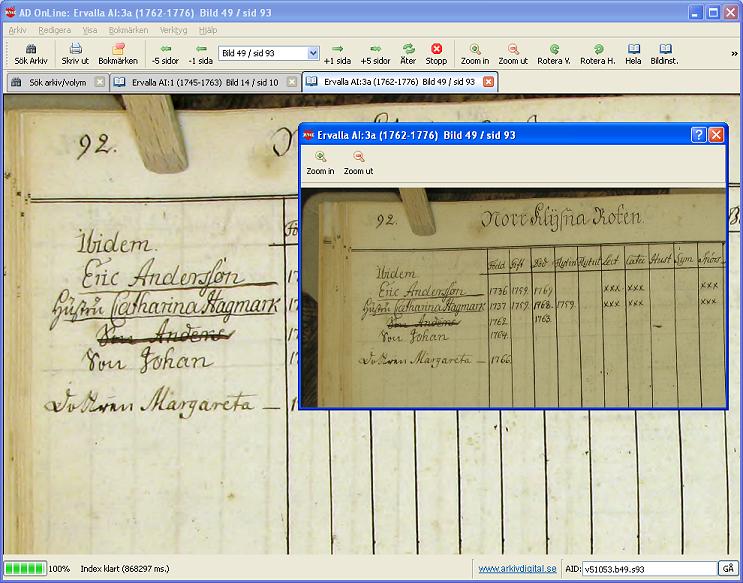 AD OnLine: Ervalla AI:3a (1762-1776) Bild 49 / sid 93
Arkiv Redigera Visa Bokmärken Verktyg Hjälp
Sök Arkiv Skriv ut Bokmärken -5 sidor -1 sida Bild 49 / sid 93 +1 sida +5 sidor Åter Stopp Zoom in Zoom ut Rotera V. Rotera H. Hela Bildinst. »
Sök arkiv/volym Ervalla AI:1 (1745-1763) Bild 14 / sid 10 Ervalla AI:3a (1762-1776) Bild 49 / sid 93
92.
Ibidem.
Eric Andersson
Hustru Catharina Hagmark
Son Anders
Son Johan
Dottren Margareta —
Ervalla AI:3a (1762-1776) Bild 49 / sid 93
Zoom in Zoom ut
92. Norr Klysna Roten.
Född Gift Död Flyttin Flytut Läst Catec Hust Sym
Ibidem
Eric Andersson 1736 1759 1767 xxx xxx xxx
Hustru Catharina Hagmark 1737 1759 1768 1759 xxx xxx xxx
Son Anders 1762 1763
Son Johan 1764
Dottren Margareta — 1766
100% Index klart (868297 ms.) www.arkivdigital.se AID: v51053.b49.s93 GÅ